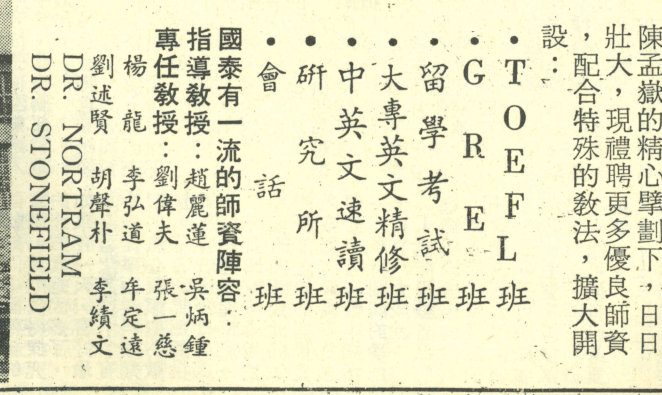 陳孟嶽的精心擘劃下，日日
壯大，現禮聘更多優良師資
，配合特殊的教法，擴大開
設：
• TOEFL班
• GRE班
• 留學考試班
• 大專英文精修班
• 中英文速讀班
• 研究所班
• 會話班
國泰有一流的師資陣容：
指導教授：趙麗蓮 吳炳鍾
專任教授：劉偉夫 張一慈
楊龍 李弘道 牟定遠
劉述賢 胡聲朴 李績文
DR. NORTRAM
DR. STONEFIELD